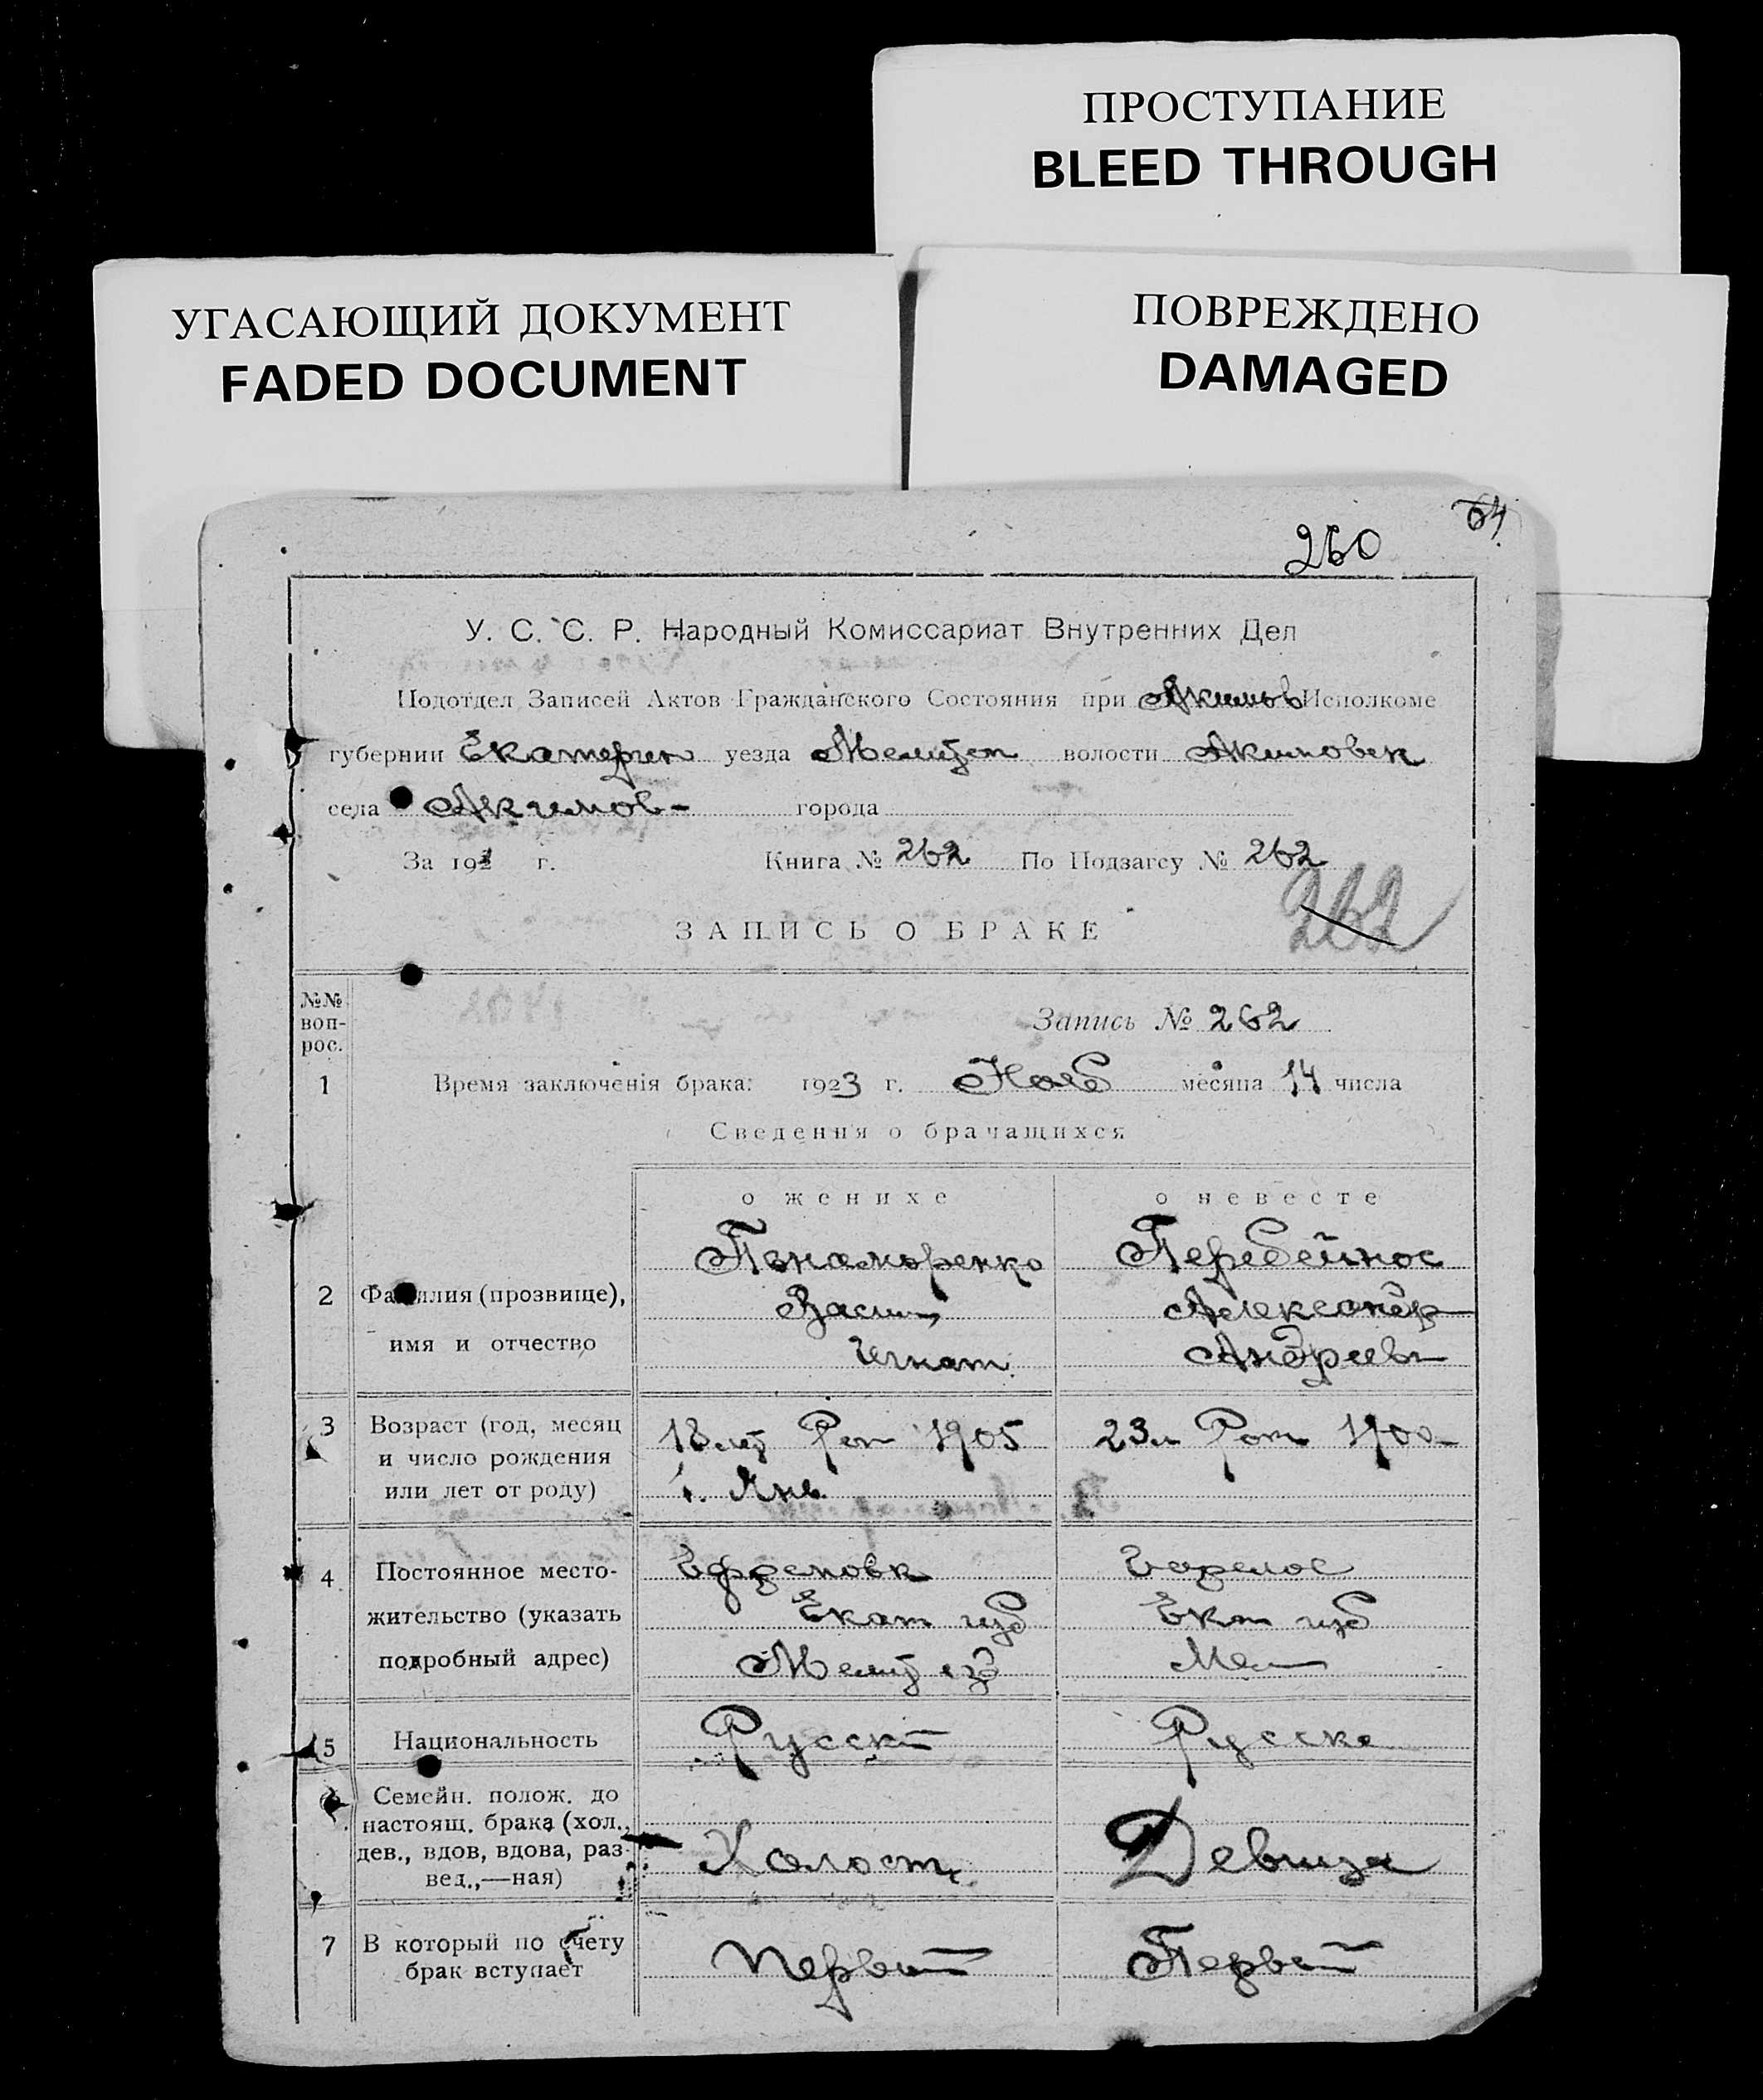 ПРОСТУПАНИЕ
BLEED THROUGH
УГАСАЮЩИЙ ДОКУМЕНТ
FADED DOCUMENT
ПОВРЕЖДЕНО
DAMAGED
64
260
У. С. С. Р. Народный Комиссариат Внутренних Дел
Подотдел Записей Актов Гражданского Состояния при Акимов Исполкоме
губернии Екатерин уезда Мелитоп волости Акимовск
села Акимов- города
За 1923 г. Книга № 262 По Подзагсу № 262
262
ЗАПИСЬ О БРАКЕ
№№ воп-рос.
Запись № 262
1 Время заключенія брака: 1923 г. Нояб месяца 14 числа
Сведения о брачащихся
о женихе о невесте
Понамаренко Перебейнос
2 Фамилия (прозвище), Васил Александр
имя и отчество Игнат. Андреевн
3 Возраст (год, месяц и число рождения или лет от роду) 18 лет Рол 1905 23 л Рол 1900
1. Янв.
4 Постоянное место- Ефремовк
жительство (указать Екат губ Екат губ
подробный адрес) Мелит уезд Мел
5 Национальность Русский Русска
6 Семейн. полож. до
настоящ. брака (хол.,
дев., вдов, вдова, раз-
вед.,—ная) Холост Девица
7 В который по счету
брак вступает Первый Первый